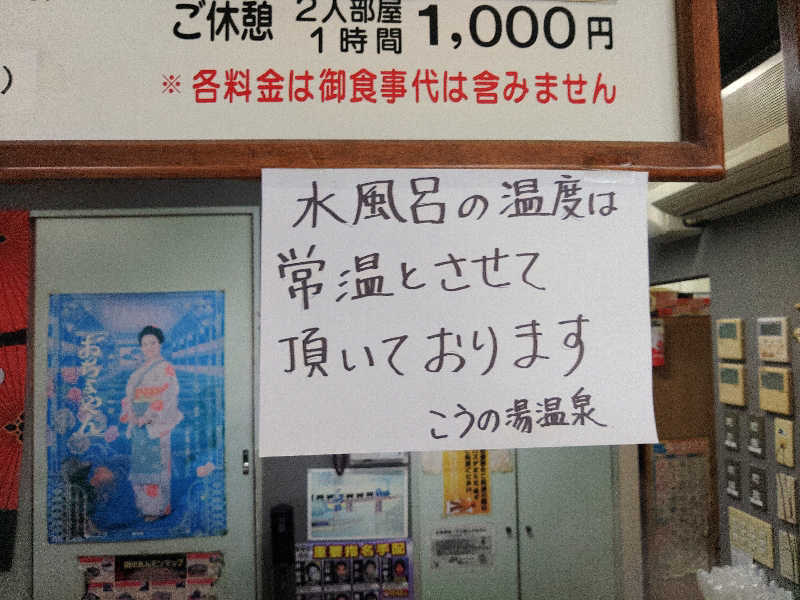 ご休憩 2人部屋 1,000円
1時間
※各料金は御食事代は含みません
水風呂の温度は
常温とさせて
頂いております
こうの湯温泉
重要指名手配